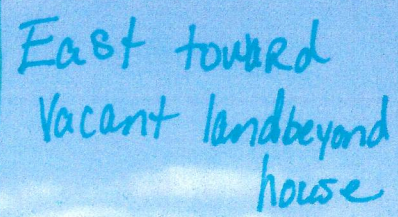 East toward
Vacant landbeyond
house